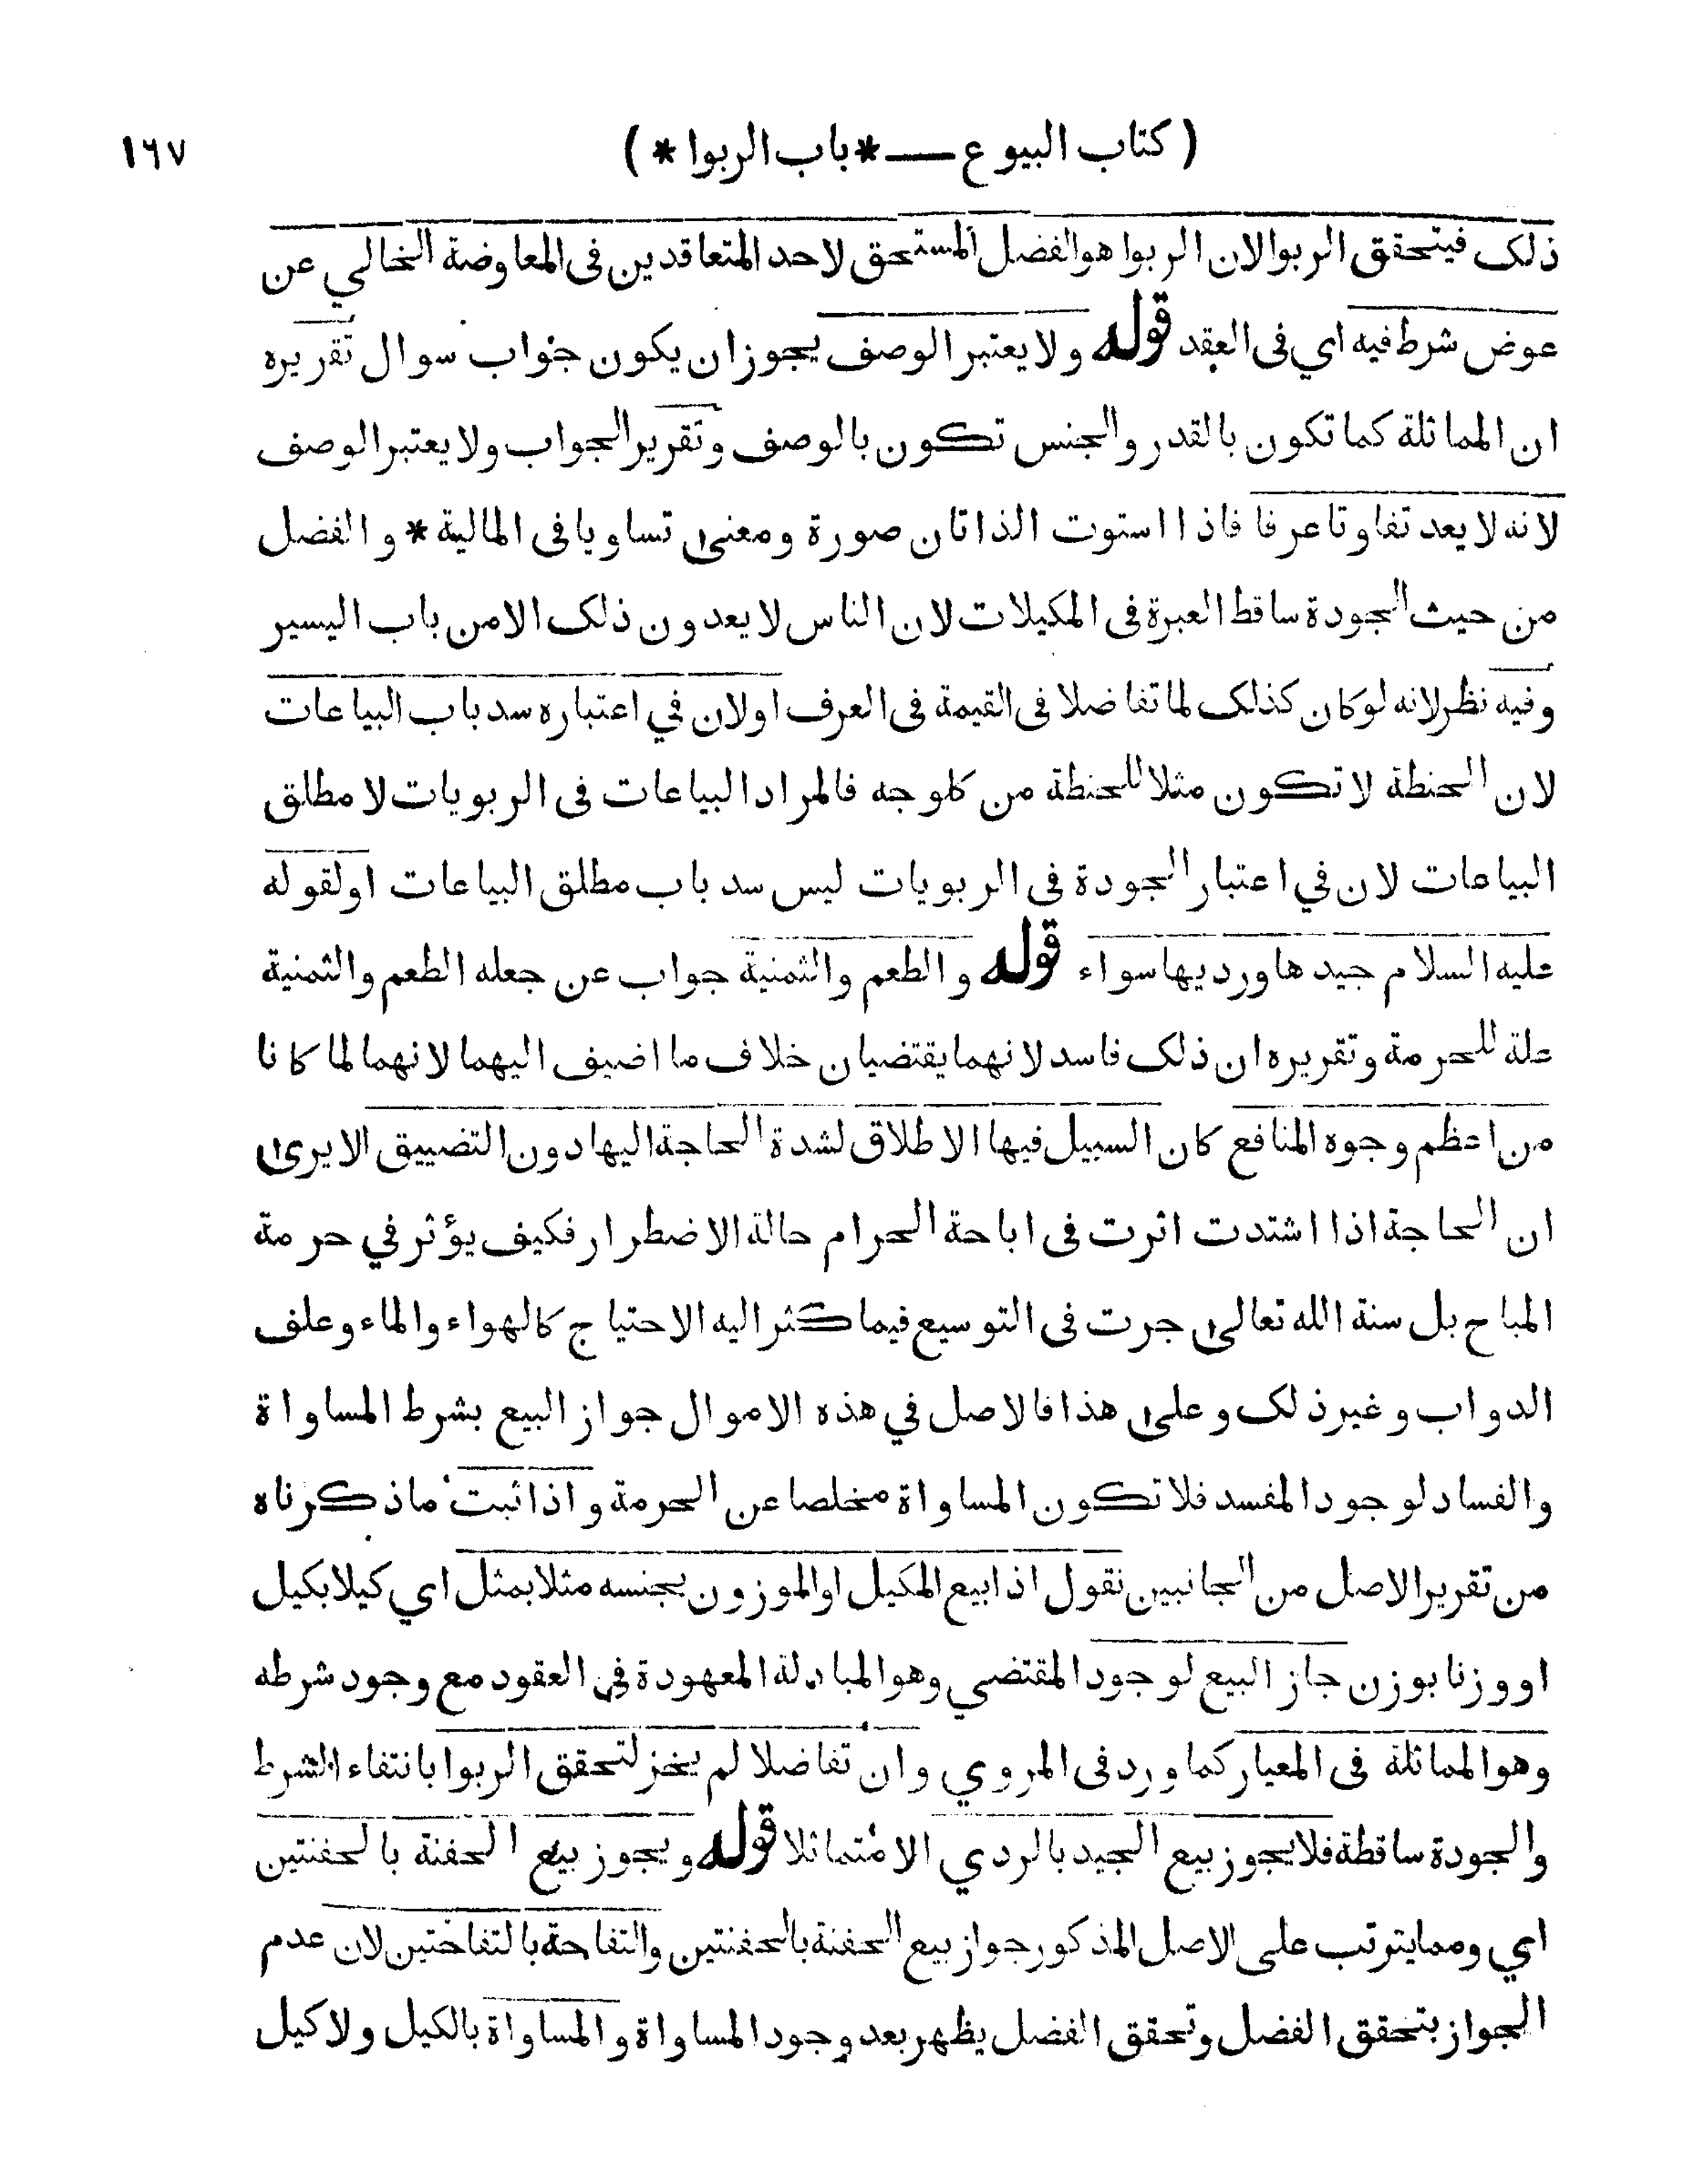 ( كتاب البيوع — * باب الربوا * ) ١٦٧
ذلك فيتحقق الربوا لان الربوا هو الفضل المستحق لاحد المتعاقدين فى المعاوضة الخالي عن
عوض شرط فيه اي فى العقد قوله ولا يعتبر الوصف يجوز ان يكون جواب سوال تقريره
ان المماثلة كما تكون بالقدر والجنس تكون بالوصف وتقرير الجواب ولا يعتبر الوصف
لانه لا يعد تفاوتا عرفا فاذا استوت الذاتان صورة ومعنى تساويا فى المالية * والفضل
من حيث الجودة ساقط العبرة فى المكيلات لان الناس لا يعدون ذلك الا من باب اليسير
وفيه نظر لانه لو كان كذلك لما تفاضلا فى القيمة فى العرف او لان في اعتباره سد باب البياعات
لان الحنطة لا تكون مثلا للحنطة من كلوجه فالمراد البياعات فى الربويات لا مطلق
البياعات لان في اعتبار الجودة فى الربويات ليس سد باب مطلق البياعات او لقوله
عليه السلام جيدها ورديها سواء قوله والطعم والثمنية جواب عن جعله الطعم والثمنية
علة للحرمة وتقريره ان ذلك فاسد لانهما يقتضيان خلاف ما اضيف اليهما لانهما لما كانا
من اعظم وجوه المنافع كان السبيل فيها الاطلاق لشدة الحاجة اليها دون التضييق الا يرى
ان الحاجة اذا اشتدت اثرت فى اباحة الحرام حالة الاضطرار فكيف يؤثر في حرمة
المباح بل سنة الله تعالى جرت فى التوسيع فيما كثر اليه الاحتياج كالهواء والماء وعلف
الدواب وغير ذلك وعلى هذا فالاصل في هذه الاموال جواز البيع بشرط المساواة
والفساد لوجود المفسد فلا تكون المساواة مخلصا عن الحرمة واذا ثبت ما ذكرناه
من تقرير الاصل من الجانبين نقول اذا بيع المكيل او الموزون بجنسه مثلا بمثل اي كيلا بكيل
او وزنا بوزن جاز البيع لوجود المقتضي وهو المبادلة المعهودة في العقود مع وجود شرطه
وهو المماثلة فى المعيار كما ورد فى المروي وان تفاضلا لم يجز لتحقق الربوا بانتفاء الشرط
والجودة ساقطة فلا يجوز بيع الجيد بالردي الا متماثلا قوله ويجوز بيع الحفنة بالحفنتين
اي ومما يترتب على الاصل المذكور جواز بيع الحفنة بالحفنتين والتفاحة بالتفاحتين لان عدم
الجواز بتحقق الفضل وتحقق الفضل يظهر بعد وجود المساواة والمساواة بالكيل ولا كيل